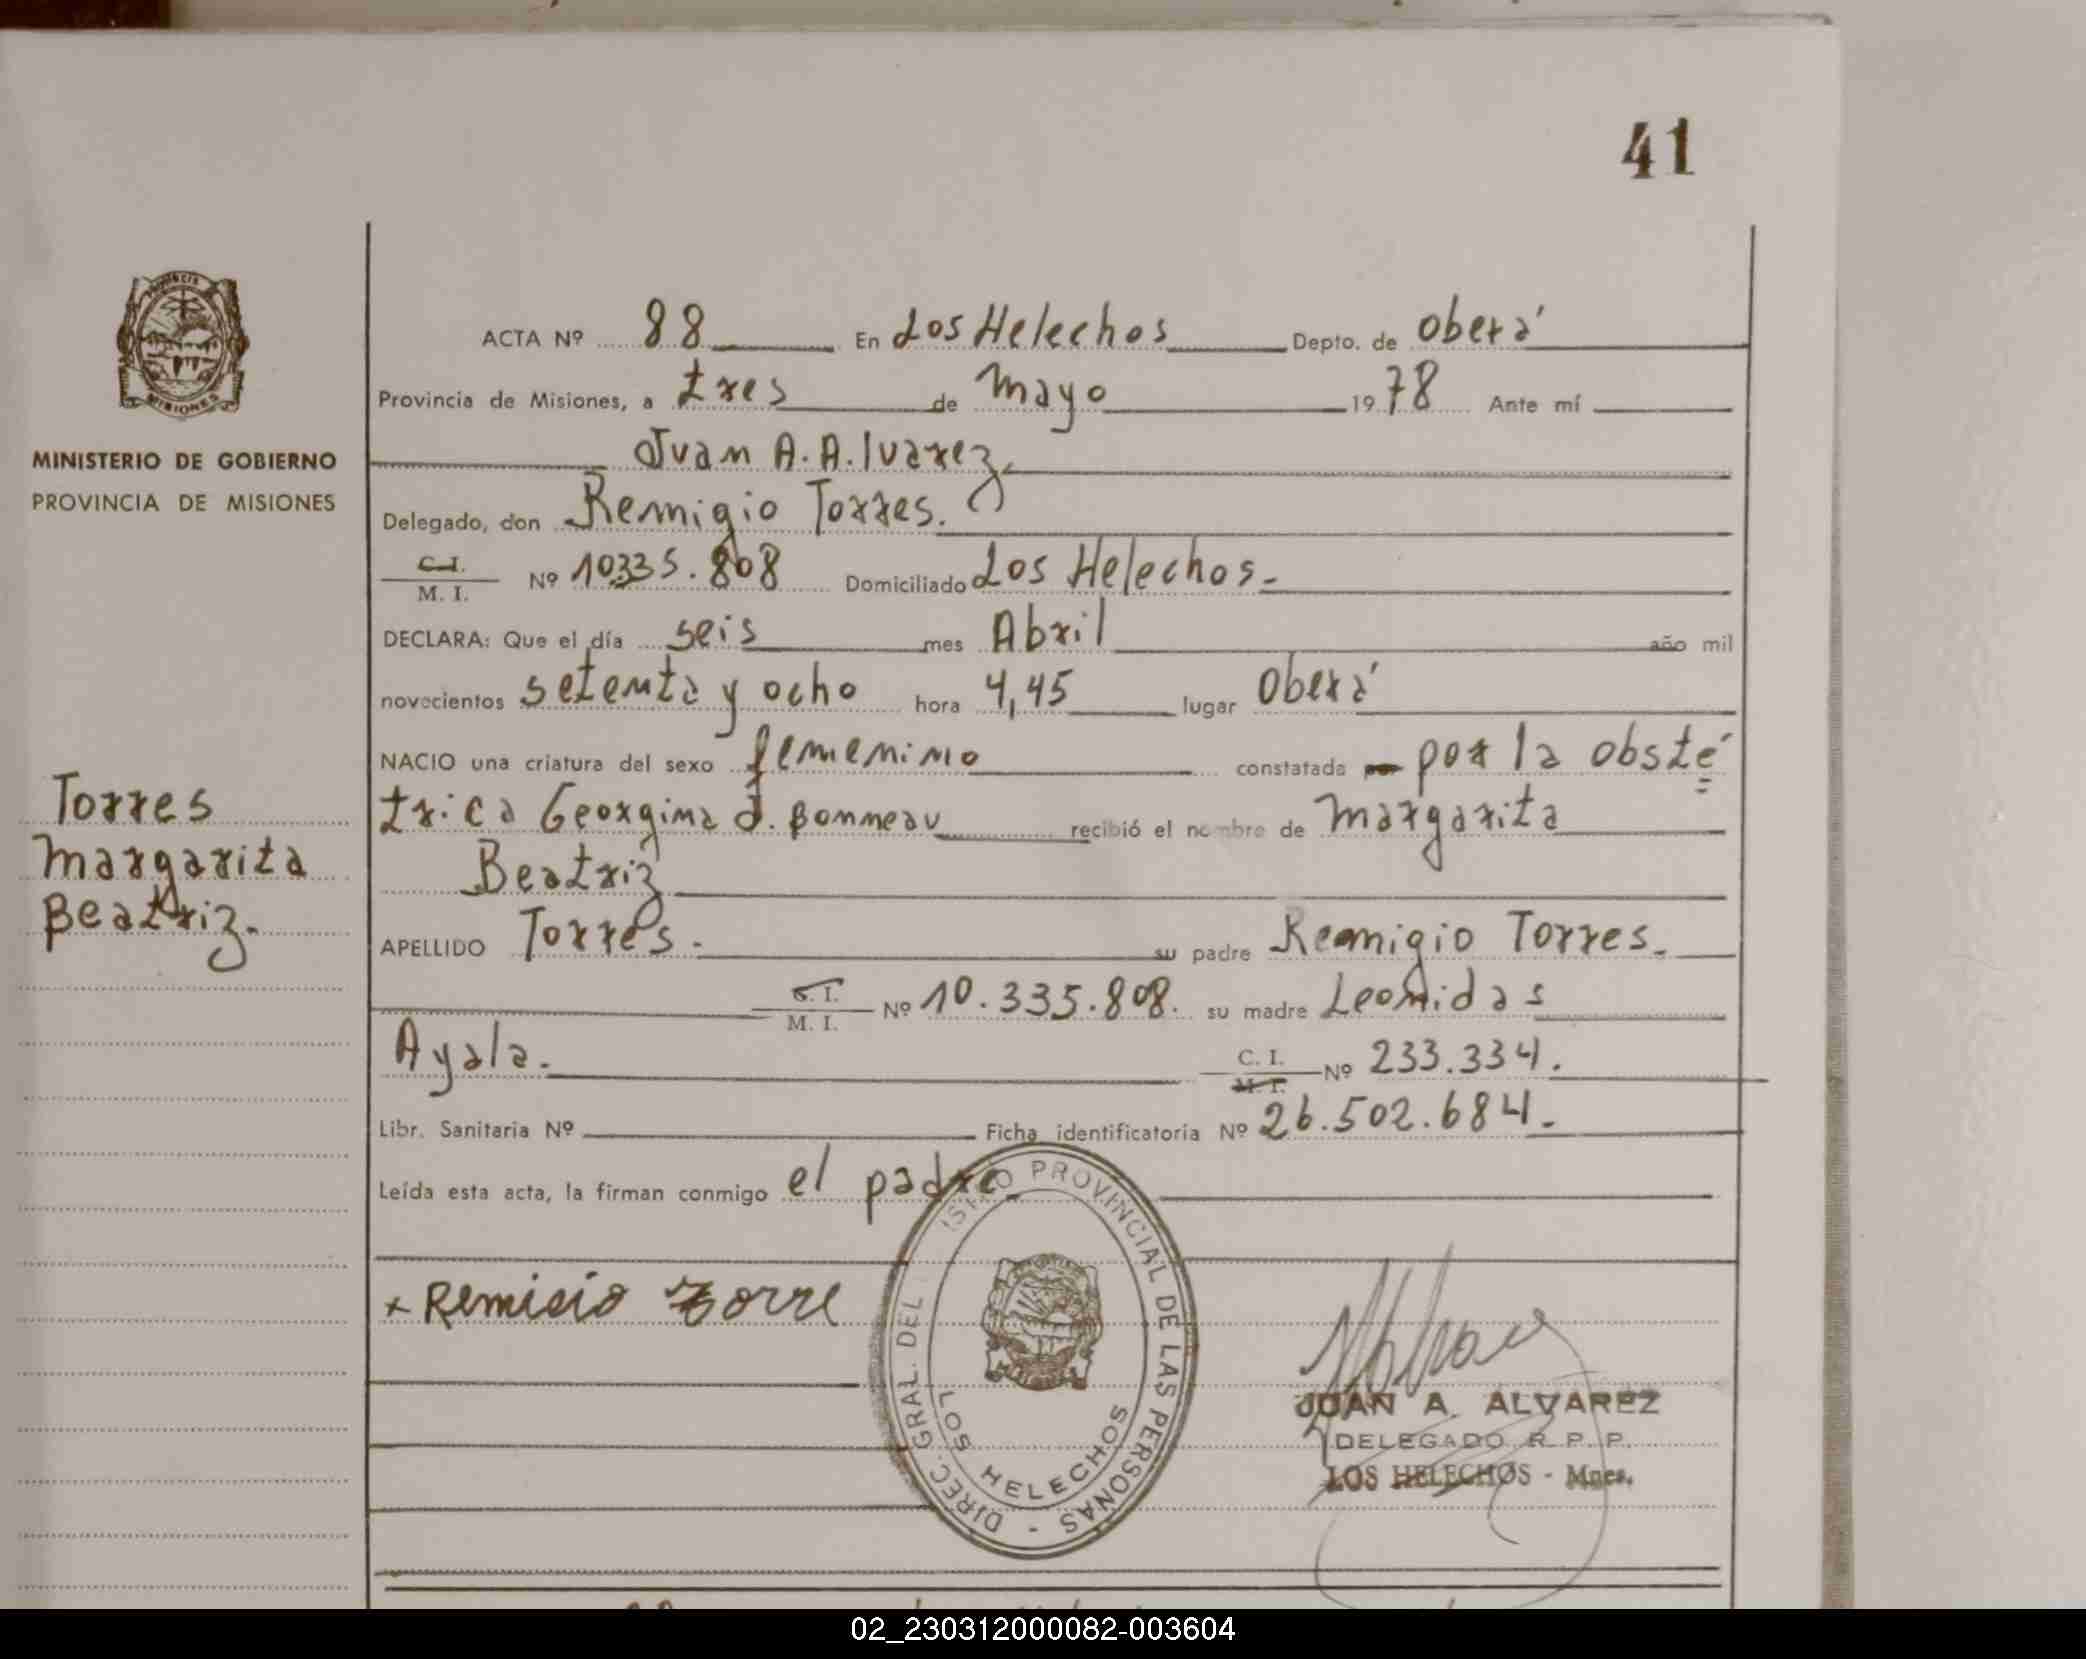 41
PROVINCIA
MISIONES
MINISTERIO DE GOBIERNO
PROVINCIA DE MISIONES
Torres
Margarita
Beatriz.
ACTA Nº 88 En Los Helechos Depto. de Oberá
Provincia de Misiones, a tres de Mayo 1978 Ante mí
Juan A. A.lvarez
Delegado, don Remigio Torres.
C. I.
M. I. Nº 10335.808 Domiciliado Los Helechos.-
DECLARA: Que el día seis mes Abril año mil
novecientos setenta y ocho hora 4,45 lugar Oberá
NACIO una criatura del sexo femenino constatada por la obsté
trica Georgina d. Bonneau recibió el nombre de Margarita
Beatriz
APELLIDO Torres.- su padre Remigio Torres.-
C. I.
M. I. Nº 10.335.808. su madre Leonidas
Ayala.- C. I.
M. I. Nº 233.334.
Libr. Sanitaria Nº Ficha identificatoria Nº 26.502.684.-
Leída esta acta, la firman conmigo el padre
+ Remicio Torre
DIREC. GRAL. DEL ISTRO PROVINCIAL DE LAS PERSONAS -
LOS HELECHOS
JUAN A. ALVAREZ
DELEGADO R. P. P.
LOS HELECHOS - Mnes.
02_230312000082-003604